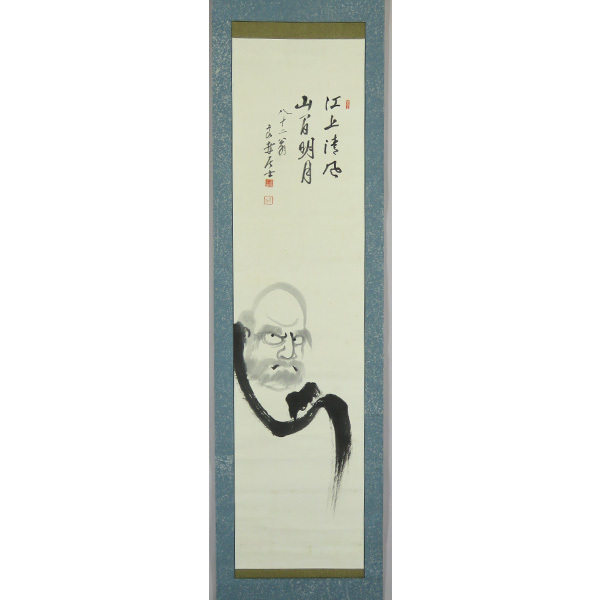 江上清风
山间明月
八十二翁
居士